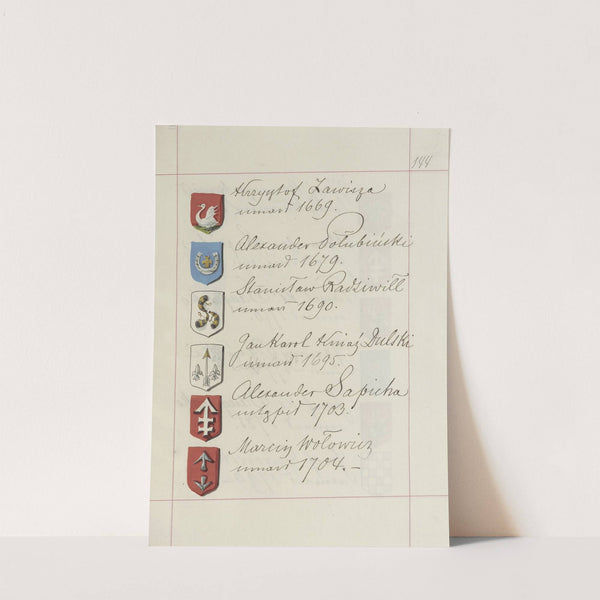 144
Krzysztof Zawisza
umarł 1669.
Alexander Połubiński
umarł 1679.
Stanisław Radziwiłł
umarł 1690.
Jan Karol Kniaź Dulski
umarł 1695.
Alexander Sapieha
ustąpił 1703.
Marcin Wołowicz
umarł 1704.–